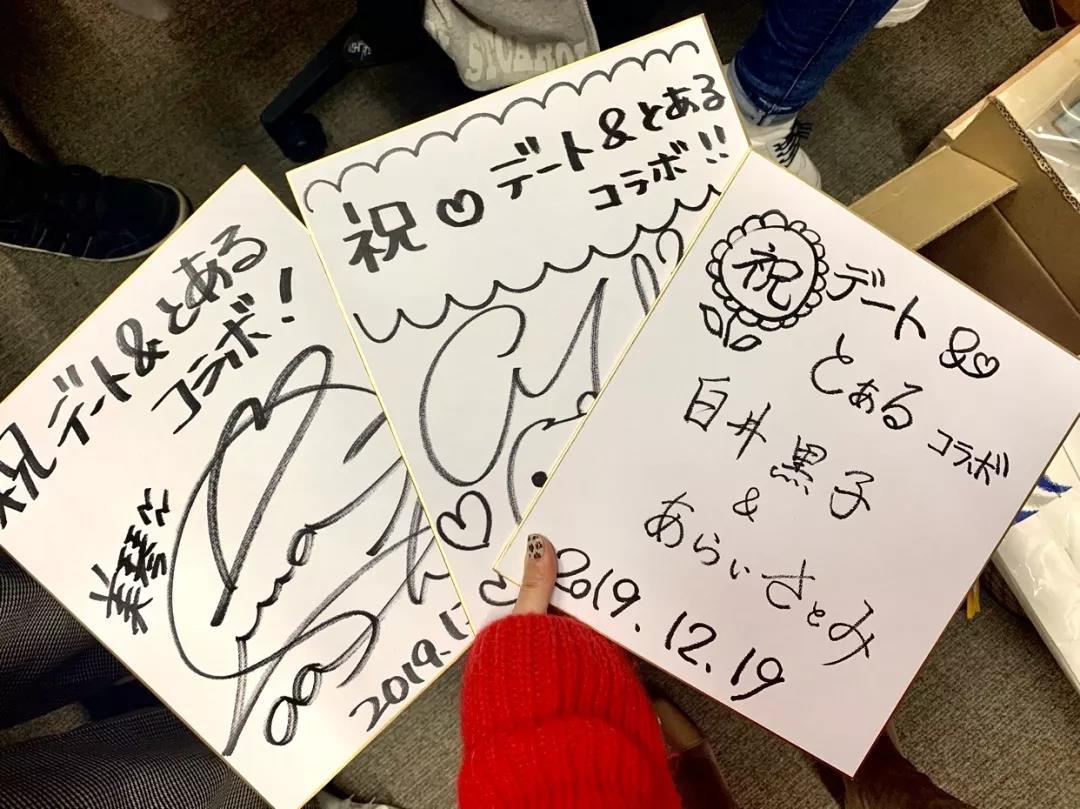 STUARO
祝 デート&とある
コラボ!
美琴
2019.1
祝♡デート&とある
コラボ!!
祝 デート &
とある
コラボ
白井黒子
&
あらいさとみ
2019.12.19